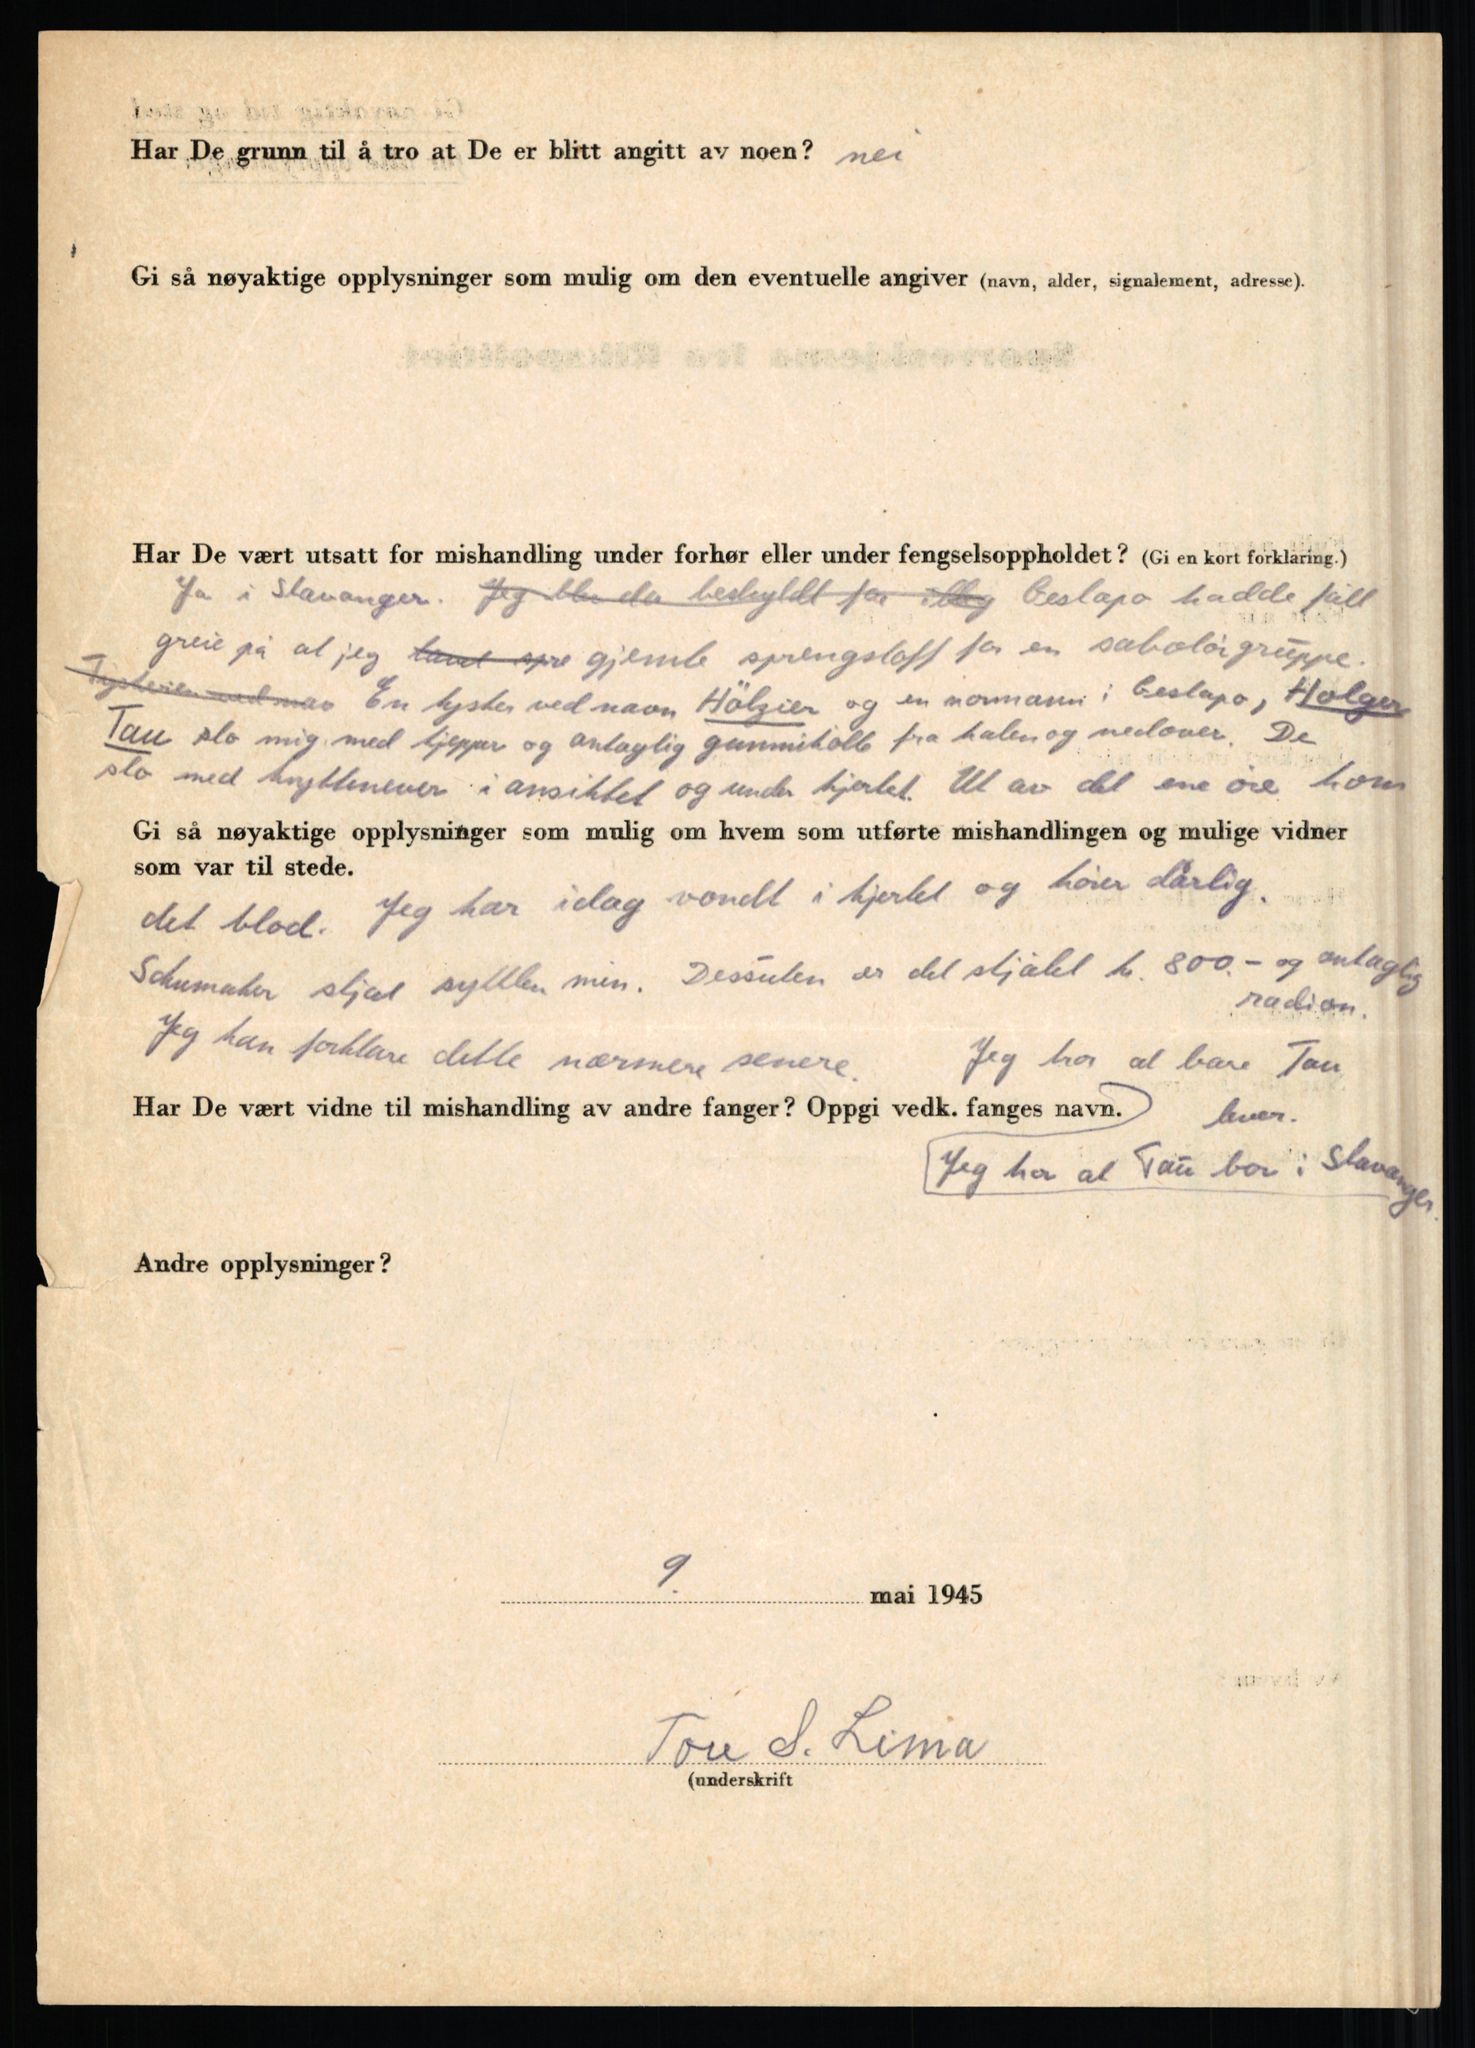 Har De grunn til å tro at De er blitt angitt av noen? nei
Gi så nøyaktige opplysninger som mulig om den eventuelle angiver (navn, alder, signalement, adresse).
Har De vært utsatt for mishandling under forhør eller under fengselsoppholdet? (Gi en kort forklaring.)
Ja i Stavanger. Jeg ble da beskyldt for Gestapo hadde fått
greie på at jeg spre gjemte sprengstoff for en sabotørgruppe.
En tysker ved navn Hölzier og en normann i Gestapo, Holger
Tau slo mig med kjepper og antaglig gummikølle fra halen og nedover. De
slo med knyttenever i ansiktet og under hjertet. Ut av det ene øre kom
Gi så nøyaktige opplysninger som mulig om hvem som utførte mishandlingen og mulige vidner
som var til stede.
det blod. Jeg har idag vondt i hjertet og hører dårlig.
Schumaker stjal sykklen min. Dessuten er det stjålet kr. 800.- og antaglig
radioen.
Jeg kan forklare dette nærmere senere. Jeg tror at bare Tau
Har De vært vidne til mishandling av andre fanger? Oppgi vedk. fanges navn.
lever.
Jeg tror at Tau bor i Stavanger.
Andre opplysninger?
9. mai 1945
Tore S. Lima
(underskrift